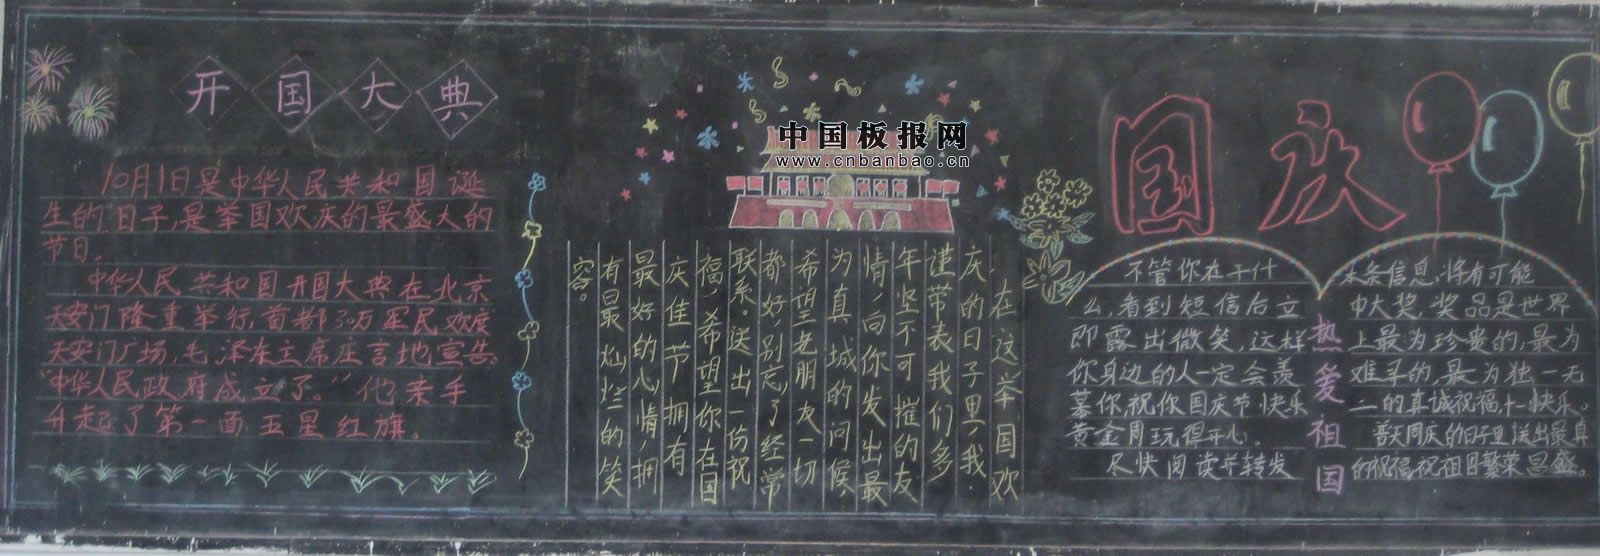 开国大典
10月1日是中华人民共和国诞
生的日子,是举国欢庆的最盛大的
节日。
中华人民共和国开国大典在北京
天安门隆重举行,首都30万军民欢度
天安门广场,毛泽东主席庄言地宣告
“中华人民政府成立了。”他亲手
升起了第一面五星红旗。
中国板报网
www.cnbanbao.cn
在这举国欢
庆的日子里,我
谨带表我们多
年坚不可摧的友
情,向你发出最
为真城的问候,
希望老朋友一切
都好,别忘了经常
联系。送出一份祝
福,希望你在国
庆佳节拥有
最好的心情,拥
有最灿烂的笑
容。
国庆
不管你在干什
么,看到短信后立
即露出微笑,这样
你身边的人一定会羡
慕你,祝你国庆节快乐
黄金周玩得开心。
尽快阅读并转发
热爱祖国
本条信息,将有可能
中大奖,奖品是世界
上最为珍贵的,最为
难寻的,最为独一无
二的真诚祝福,十一快乐。
普天同庆的日子里,送出最真
的祝福,祝祖国繁荣昌盛。